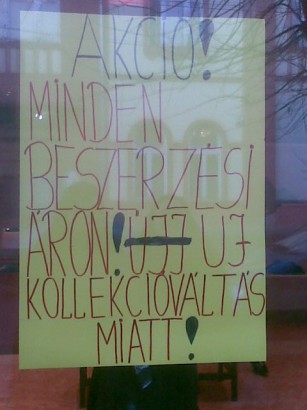 AKCIÓ!
MINDEN
BESZERZÉSI
ÁRON! ÚJJ UJ
KOLLEKCIÓVÁLTÁS
MIATT!